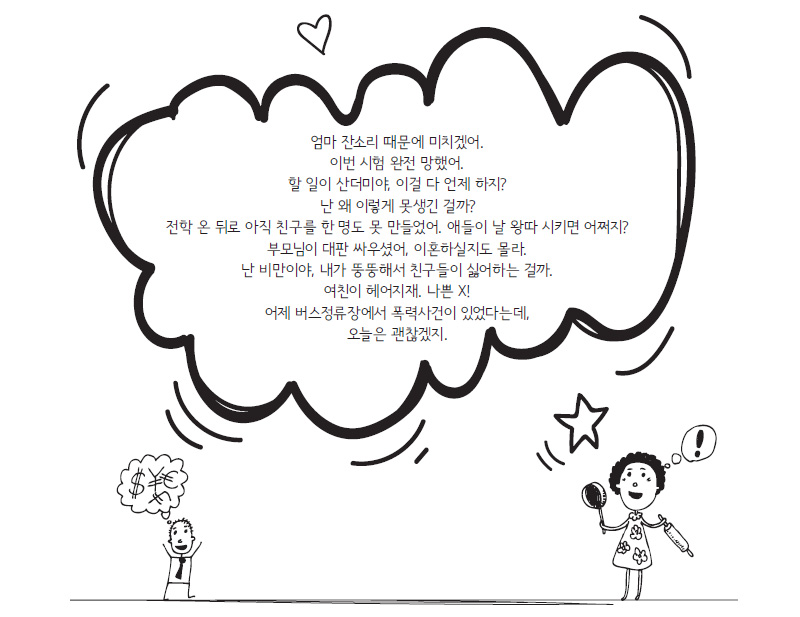 엄마 잔소리 때문에 미치겠어.
이번 시험 완전 망했어.
할 일이 산더미야, 이걸 다 언제 하지?
난 왜 이렇게 못생긴 걸까?
전학 온 뒤로 아직 친구를 한 명도 못 만들었어. 애들이 날 왕따 시키면 어쩌지?
부모님이 대판 싸우셨어, 이혼하실지도 몰라.
난 비만이야, 내가 뚱뚱해서 친구들이 싫어하는 걸까.
여친이 헤어지재. 나쁜 X!
어제 버스정류장에서 폭력사건이 있었다는데,
오늘은 괜찮겠지.
!
$ ¥ €